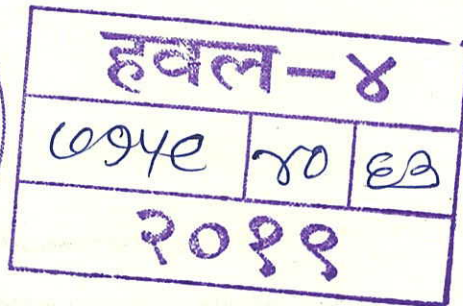 हवल-४
७१५९ ४० ६३
२०१९